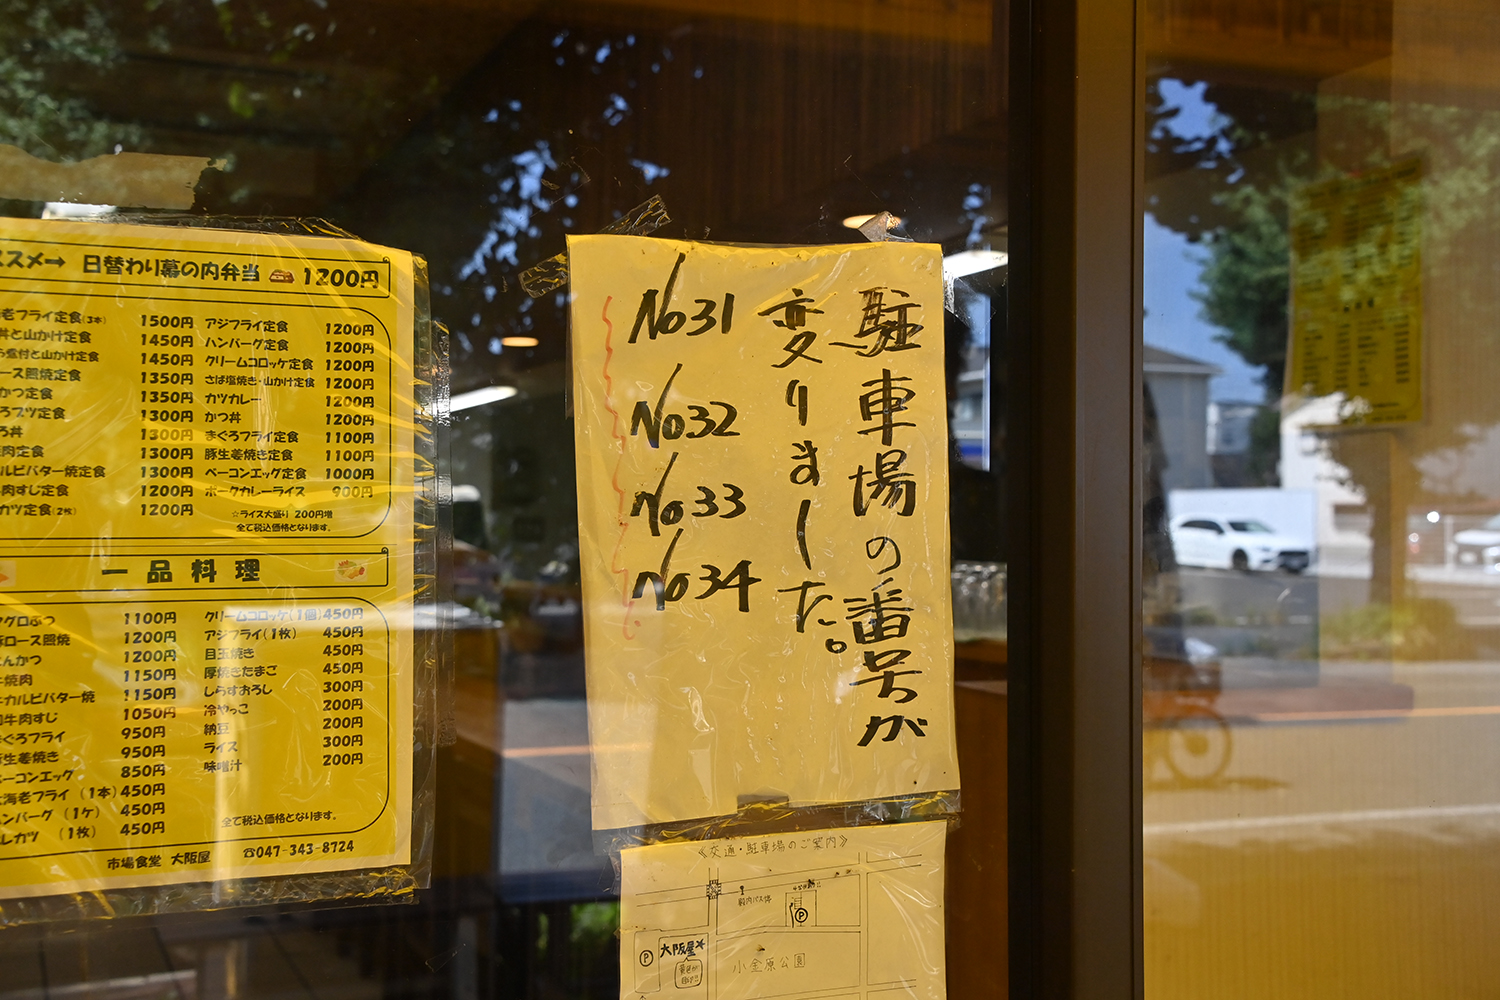 ススメ→ 日替わり幕の内弁当 1200円
老フライ定食(3本) 1500円
丼と山かけ定食 1450円
煮付と山かけ定食 1450円
ース照焼定食 1350円
かつ定食 1350円
ろブツ定食 1300円
ろ丼 1300円
肉定食 1300円
ルビバター焼定食 1300円
肉すじ定食 1200円
カツ定食(2枚) 1200円
アジフライ定食 1200円
ハンバーグ定食 1200円
クリームコロッケ定食 1200円
さば塩焼き・山かけ定食 1200円
カツカレー 1200円
かつ丼 1200円
まぐろフライ定食 1100円
豚生姜焼き定食 1100円
ベーコンエッグ定食 1000円
ポークカレーライス 900円
☆ライス大盛り 200円増
全て税込価格となります。
一品料理
マグロぶつ 1100円
豚ロース照焼 1200円
とんかつ 1200円
牛焼肉 1150円
牛カルビバター焼 1150円
和牛肉すじ 1050円
まぐろフライ 950円
豚生姜焼き 950円
ベーコンエッグ 850円
大海老フライ (1本) 450円
ハンバーグ (1ケ) 450円
ヒレカツ (1枚) 450円
クリームコロッケ(1個) 450円
アジフライ(1枚) 450円
目玉焼き 450円
厚焼きたまご 450円
しらすおろし 300円
冷やっこ 200円
納豆 200円
ライス 300円
味噌汁 200円
全て税込価格となります。
市場食堂 大阪屋 ☎047-343-8724
駐車場の番号が
変りました。
No31
No32
No33
No34
《交通・駐車場のご案内》
P
大阪屋
P
小金原公園